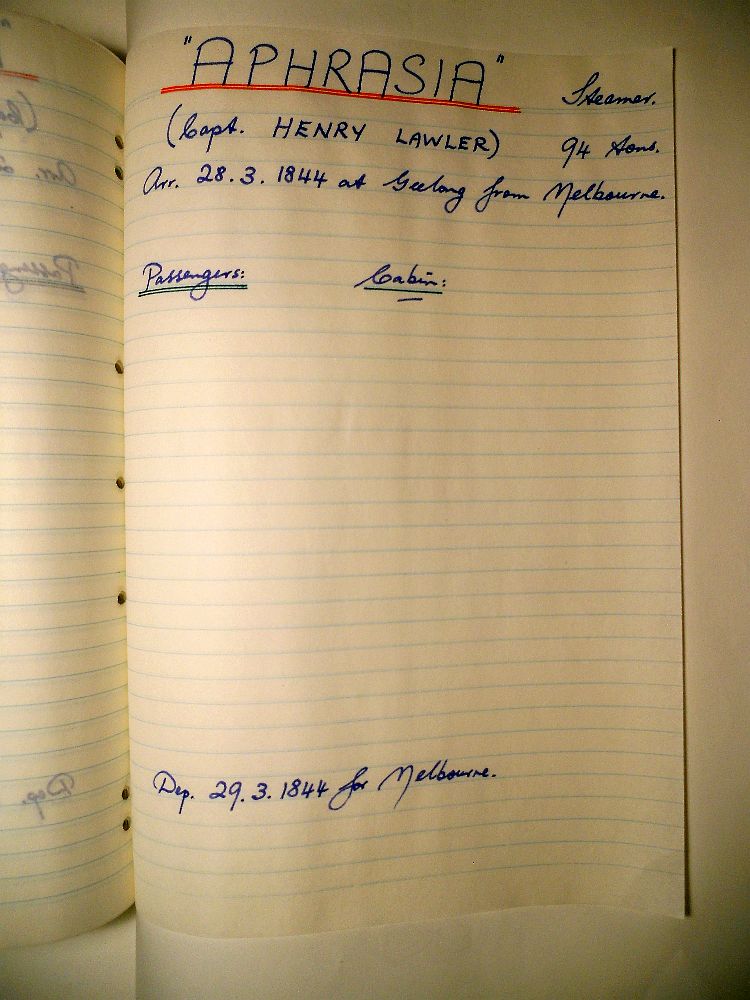 "APHRASIA" Steamer.
(Capt. HENRY LAWLER) 94 tons.
Arr. 28.3.1844 at Geelong from Melbourne.
Passengers: Cabin:
Dep. 29.3.1844 for Melbourne.